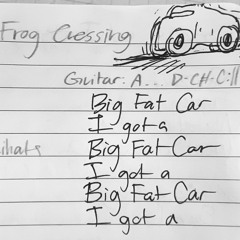 Frog Cressing
Guitar: A... D-CH-C:||
Big Fat Car
I got a
Big Fat Car
I got a
Big Fat Car
I got a